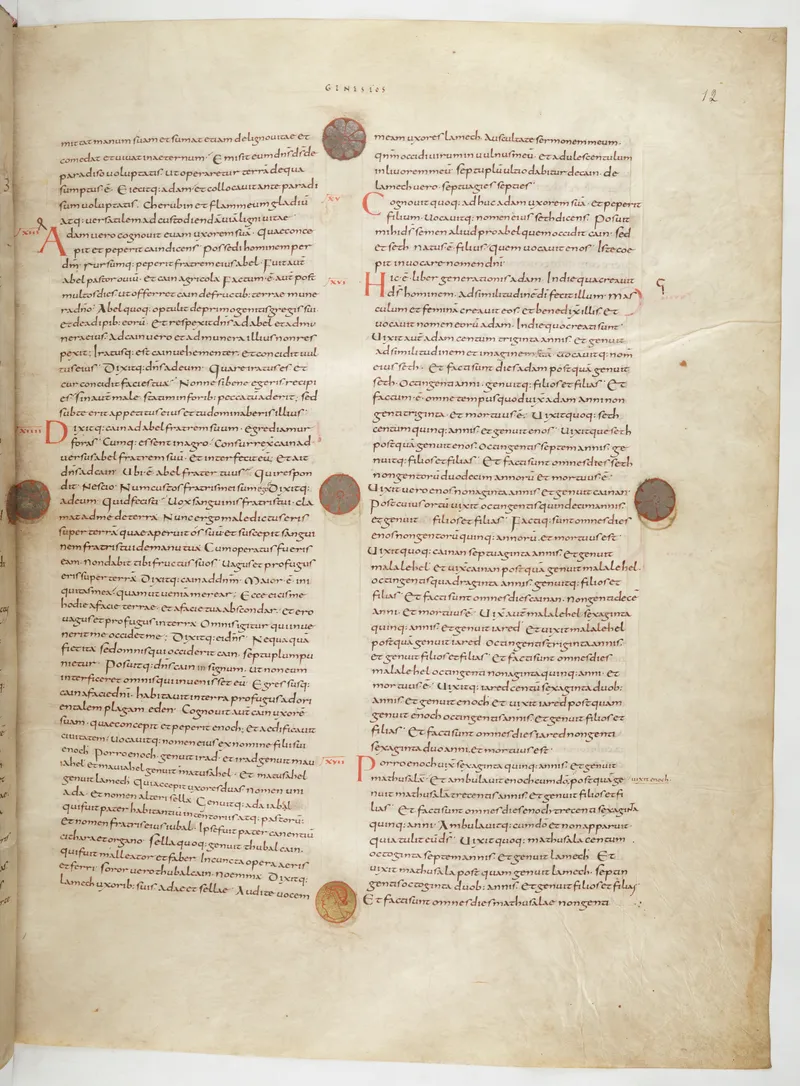 GENESIES
12
mittat manum suam et sumat etiam deligno uitae et
comedat et uiuat inaeternum· Emisit eum dn̄s d̄s de
paradiso uoluptatis· ut operaretur terrā dequa
sumptus ē· Eiecitq; adam et collocauit ante paradi
sum uoluptatis· Cherubin et flammeum gladiū
atq; uersatilem ad custodiendā uiā ligni uitae
xiii Adam uero cognouit euam uxorem suā· quae conce
pit et peperit cain dicens· Possedi hominem per
dm̄· rursumq; peperit fratrem eius abel· Fuit aūt
abel pastor ouiū· et cain agricola Factum ē aūt post
multos dies ut offerret cain defructib; terrae mune
ra dn̄o· Abel quoq; optulit de primogenitis gregis sui
et deadipib; eorū· Et respexit dn̄s ad abel et ad mu
nera eius· Ad cain uero et ad munera illius non res
pexit· Iratusq; est cain uehementer· et concidit uul
tus eius· Dixitq; dn̄s ad eum· Quare iratus es et
cur concidit facies tua· Nonne si bene egeris recipi
es· sin aut male· statim in forib; peccatū aderit; sed
sub te erit appetitus eius et tu dominaberis illius·
xiiii Dixitq; cain ad abel fratrem suum· egrediamur
foras· Cumq; essent inagro· Consurrex̄ cain ad
uersus abel fratrem suū· et interfecit eū; Et ait
dn̄s ad cain· Ubi ē abel frater tuus· Qui respon
dit· Nescio· Num custos fratris mei sum ego Dixitq;
ad eum· Quid fecisti· Uox sanguinis fratris tui· cla
mat ad me de terra· Nunc ergo maledictus eris
super terrā quae aperuit os suū et suscepit sangui
nem fratris tui de manu tua Cum operatus fueris
eam· non dabit tibi fructus suos· Uagus et profugus
eris super terrā· Dixitq; cain ad dn̄m· Maior ē ini
quitas mea· quam ut ueniā merear; Ecce eicis me
hodie a facie terrae· et a facie tua abscondar· et ero
uagus et profugus in terra· Omnis igitur qui inue
nerit me occidet me; Dixitq; ei dn̄s· Nequaquā
fiet ita sed omnis qui occiderit cain· septuplum pu
nietur· Posuitq; dn̄s cain in signum· ut non eum
interficeret omnis qui inuenisset eū· Egressusq;
cain a facie dn̄i· habitauit in terra profugus ad ori
entalem plagam eden· Cognouit aūt cain uxorē
suam· quae concepit et peperit enoch; et aedificauit
ciuitatem· Uocauitq; nomen eius ex nomine filii sui
enoch Porro enoch· genuit irad· et irad genuit mau
iahel et mauiahel genuit matusahel· Et matusahel
genuit lamech Qui accepit uxores duas· nomen uni
ada· et nomen alteri sella Genuitq; ada iabal
qui fuit pater habitantiū in tentoriis atq; pastorū·
et nomen fratris eius iubal· Ipse fuit pater canentiū
cithara et organo· Sella quoq; genuit thubalcain·
qui fuit malleator et faber In cuncta opera aeris
et ferri· Soror uero thubalcain· noemma Dixitq;
lamech uxorib; suis· adae et sellae· Audite uocem
meam uxores lamech· Auscultate sermonem meum·
qm̄ occidi uirum in uulnus meū· et adulescentulum
in liuorem meū· septuplū ultio dabitur de cain· de
lamech uero· septuagies septies
xv Cognouit quoq; ad huc adam uxorem suā· et peperit
filium· Uocauitq; nomen eius seth dicens· Posuit
mihi d̄s semen aliud pro abel quem occidit cain· Sed
et seth· natus ē filius· quem uocauit enos· Iste coe
pit inuocare nomen dn̄i·
xvi Hic ē liber generationis adam· In die qua creauit
d̄s hominem· Ad similitudinē d̄i fecit illum· Mas
culum et feminā creauit eos· et benedix̄ illis· et
uocauit nomen eorū adam· In die quo creati sunt
Uixit aūt adam centum triginta annis· et genuit
ad similitudinem et imaginem suā· uocauitq; nom̄
eius seth· Et facti sunt dies adam postquā genuit
seth· Octingenti anni· genuitq; filios et filias· Et
factum ē· omne tempus quod uix̄ adam anni non
genti triginta· Et mortuus ē; Uixit quoq; seth
centum quinq; annis· et genuit enos· Uixitque seth
postquā genuit enos· Octingentis septem annis· ge
nuitq; filios et filias· Et facti sunt omnes dies seth
nongentorū duodecim annorū et mortuus ē·
Uixit uero enos nonaginta annis· et genuit cainan·
Post cuius ortū uixit octingentis quindecim annis·
et genuit filios et filias· Factiq; sunt omnes dies
enos nongentorū quinq; annorū· et mortuus est·
Uixit quoq; cainan septuaginta annis· et genuit
malalehel· et uix̄ cainan postquā genuit malalehel·
octingentis quadraginta annis· genuitq; filios et
filias· Et facti sunt omnes dies cainan· nongenti decē
anni· Et mortuus ē· Uix̄ aūt malalehel sexaginta
quinq; annis· et genuit iared Et uixit malalehel
postquā genuit iared Octingentis triginta annis·
et genuit filios et filias· Et facti sunt omnes dies
malalehel octingenti nonaginta quinq; anni· et
mortuus ē· Uixitq; iared centū sexaginta duob;
annis· et genuit enoch et uixit iared postquam
genuit enoch octingentis annis· et genuit filios et
filias· Et facti sunt omnes dies iared nongenti
sexaginta duo anni· et mortuus est·
xvii Porro enoch uix̄ sexaginta quinq; annis· et genuit
mathusalā· Et ambulauit enoch cum dō postquā ge
uixit enoch
nuit mathusalā trecentis annis· et genuit filios et fi
lias· Et facti sunt omnes dies enoch trecenti sexaginta
quinq; anni· Ambulauitq; cum dō et non apparuit·
quia tulit eū d̄s· Uixit quoq; mathusala centum
octoginta septem annis· et genuit lamech· Et
uixit mathusala post quam genuit lamech· septin
gentis octoginta duob; annis· et genuit filios et filias
Et facti sunt omnes dies mathusalae nongenti